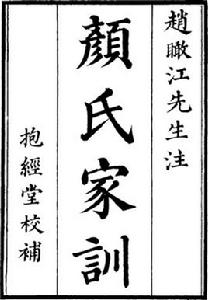 趙瞰江先生注
顏氏家訓
抱經堂校補